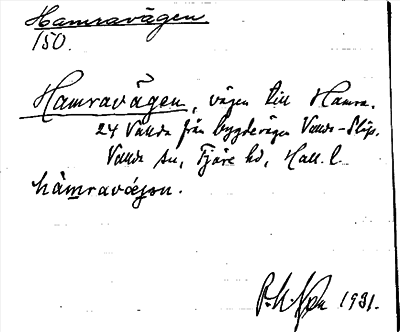 Hamravägen
150.
Hamravägen, vägen till Hamra.
24 Valda från bygdevägen Valda-Släp.
Valda sn, Fjäre hd, Hall. l.
hàmravǽgən.
1931.